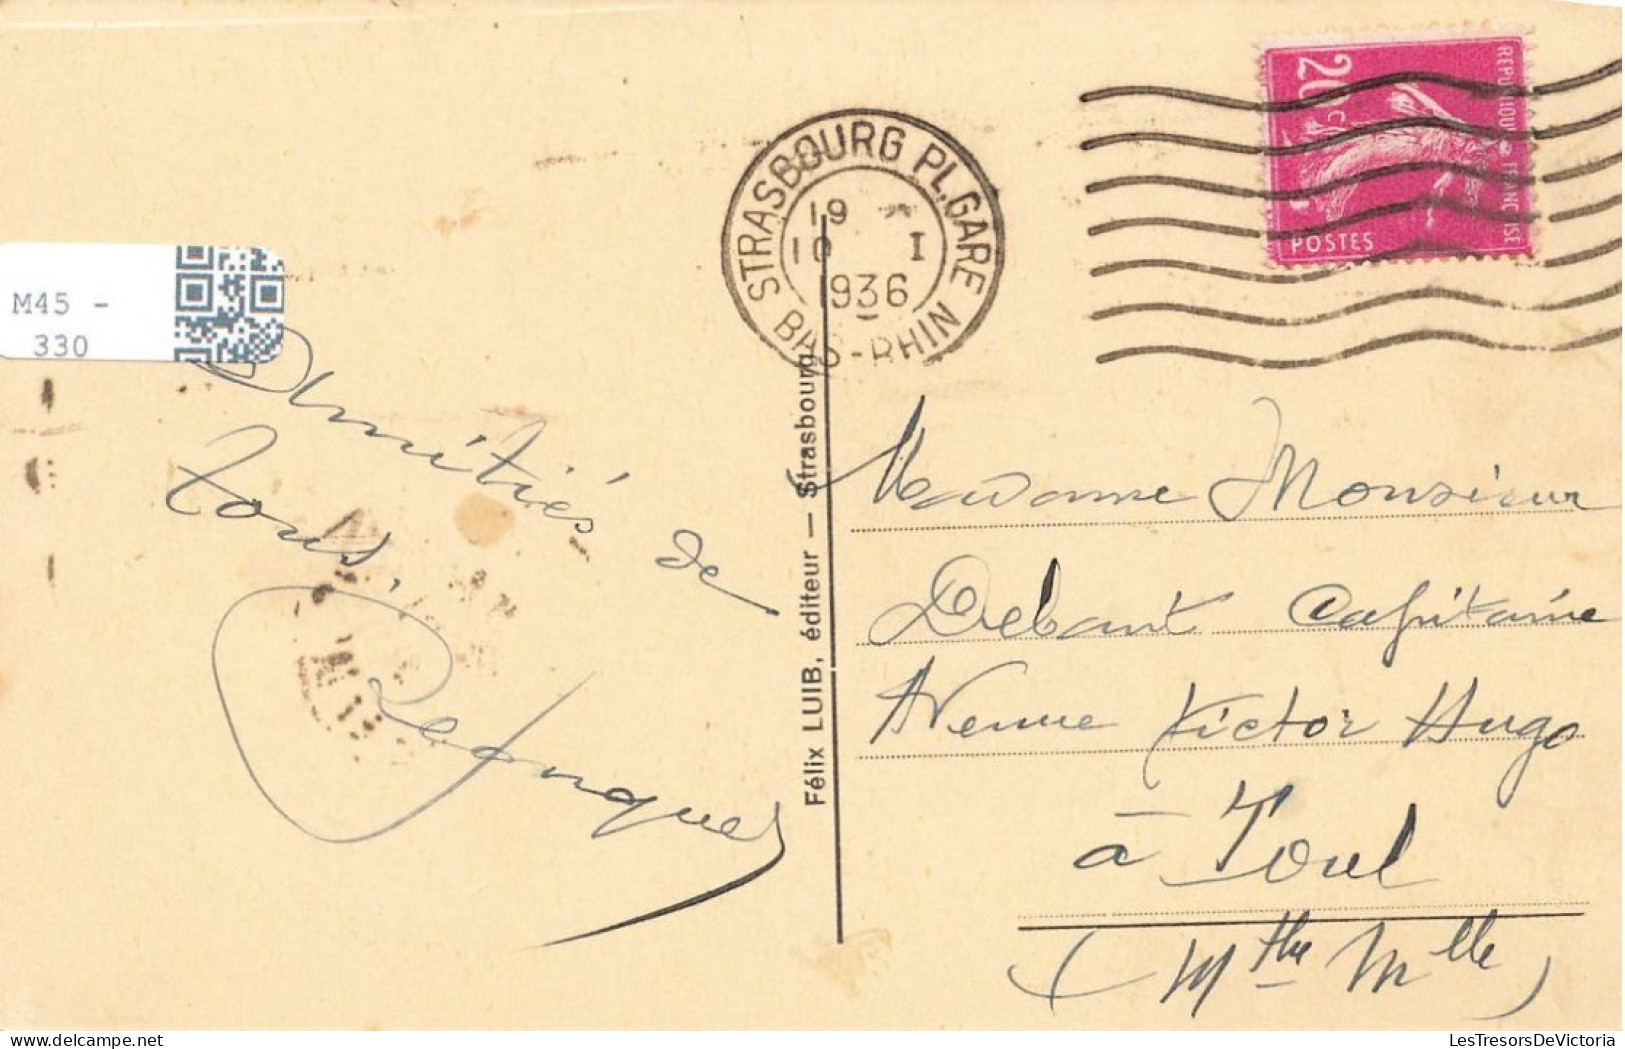 REPUBLIQUE FRANÇAISE
20c
POSTES
STRASBOURG PL.GARE
BAS-RHIN
19
10 I
1936
M45 -
330
Amitiés de
tous.
Félix LUIB, éditeur — Strasbourg
Madame Monsieur
Debant Capitaine
Avenue Victor Hugo
à Toul
(Mthe Mlle)
LesTresorsDeVictoria